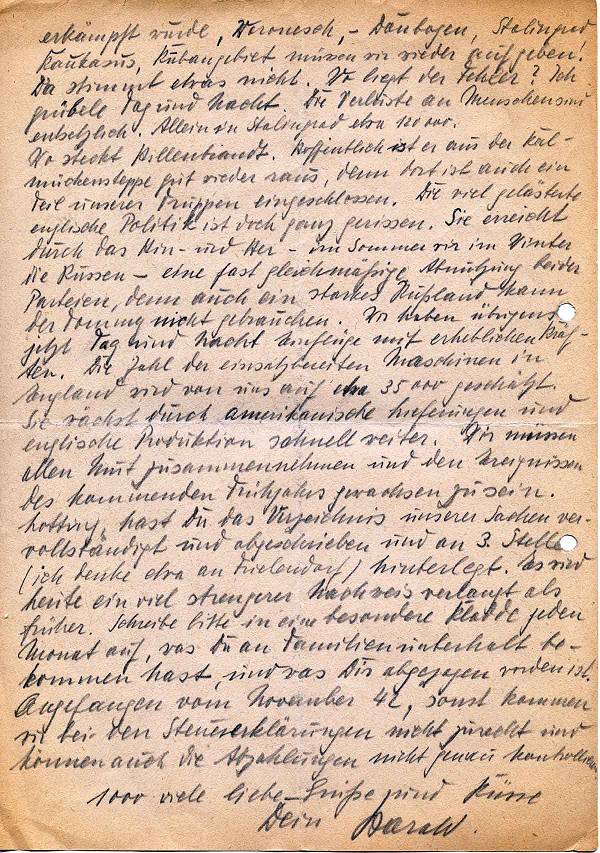 erkämpft wurde, Woronesch, - Donbogen, Stalingrad
Kaukasus, Kubangebiet müssen wir wieder aufgeben!
Da stimmt etwas nicht. Wo liegt der Fehler? Ich
grübele Tag und Nacht. Die Verluste an Menschen sind
entsetzlich. Allein in Stalingrad etwa 120 000.
Wo steckt Hillenbrandt. Hoffentlich ist er aus der Kal-
mückensteppe gut wieder raus, denn dort ist auch ein
Teil unserer Truppen eingeschlossen. Die viel gelästerte
englische Politik ist doch ganz gerissen. Sie erreicht
durch das Hin- und Her - im Sommer wir im Winter
die Russen - eine fast gleichmäßige Abnutzung beider
Parteien, denn auch ein starkes Rußland kann
der Tommy nicht gebrauchen. Wir haben übrigens
jetzt Tag und Nacht Einflüge mit erheblichen Kräf-
ten. Die Zahl der einsatzbereiten Maschinen in
England wird von uns auf etwa 35 000 geschätzt.
Sie wächst durch amerikanische Lieferungen und
englische Produktion schnell weiter. Wir müssen
allen Mut zusammennehmen und den Ereignissen
des kommenden Frühjahrs gewachsen zu sein.
hast Du das Verzeichnis unserer Sachen ver-
vollständigt und abgeschrieben und an 3. Stelle
(ich denke etwa an Frielendorf) hinterlegt. Es wird
heute ein viel strengerer Nachweis verlangt als
früher. Schreibe bitte in eine besondere Kladde jeden
Monat auf, was Du an Familienunterhalt be-
kommen hast, und was Dir abgezogen worden ist.
Angefangen vom November 42, sonst kommen
wir bei den Steuererklärungen nicht zurecht und
können auch die Abzahlungen nicht genau kontrollieren
1000 viele liebe Grüße und Küsse
Dein Harald.